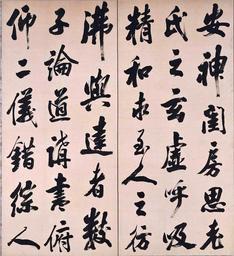 安神閨房思老
氏之玄虛呼吸
精和求至人之彷
彿與達者數
子論道講書俯
仰二儀錯綜人